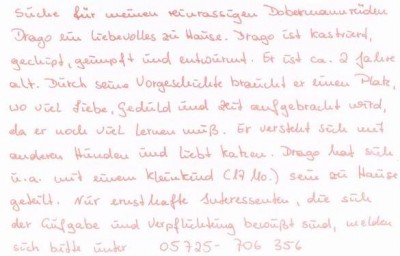 Suche für meinen reinrassigen Dobermannrüden
Drago ein liebevolles zu Hause. Drago ist kastriert,
gechipt, geimpft und entwurmt. Er ist ca. 2 Jahre
alt. Durch seine Vorgeschichte braucht er einen Platz,
wo viel Liebe, Geduld und Zeit aufgebracht wird,
da er noch viel lernen muß. Er versteht sich mit
anderen Hunden und liebt Katzen. Drago hat sich
u.a. mit einem Kleinkind (17 Mo.) sein zu Hause
geteilt. Nur ernsthafte Interessenten, die sich
der Aufgabe und Verpflichtung bewußt sind, melden
sich bitte unter 05725- 706 356